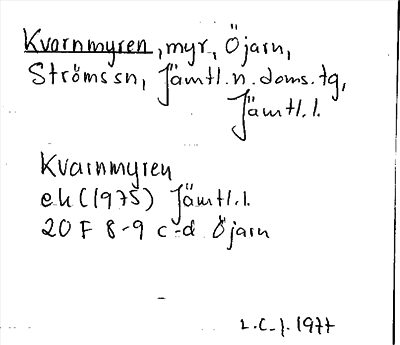 Kvarnmyren, myr, Öjarn,
Ströms sn, Jämtl. n. doms. tg,
Jämtl. l.
Kvarnmyren
ek (1975) Jämtl. l.
20 F 8-9 c-d Öjarn
1977